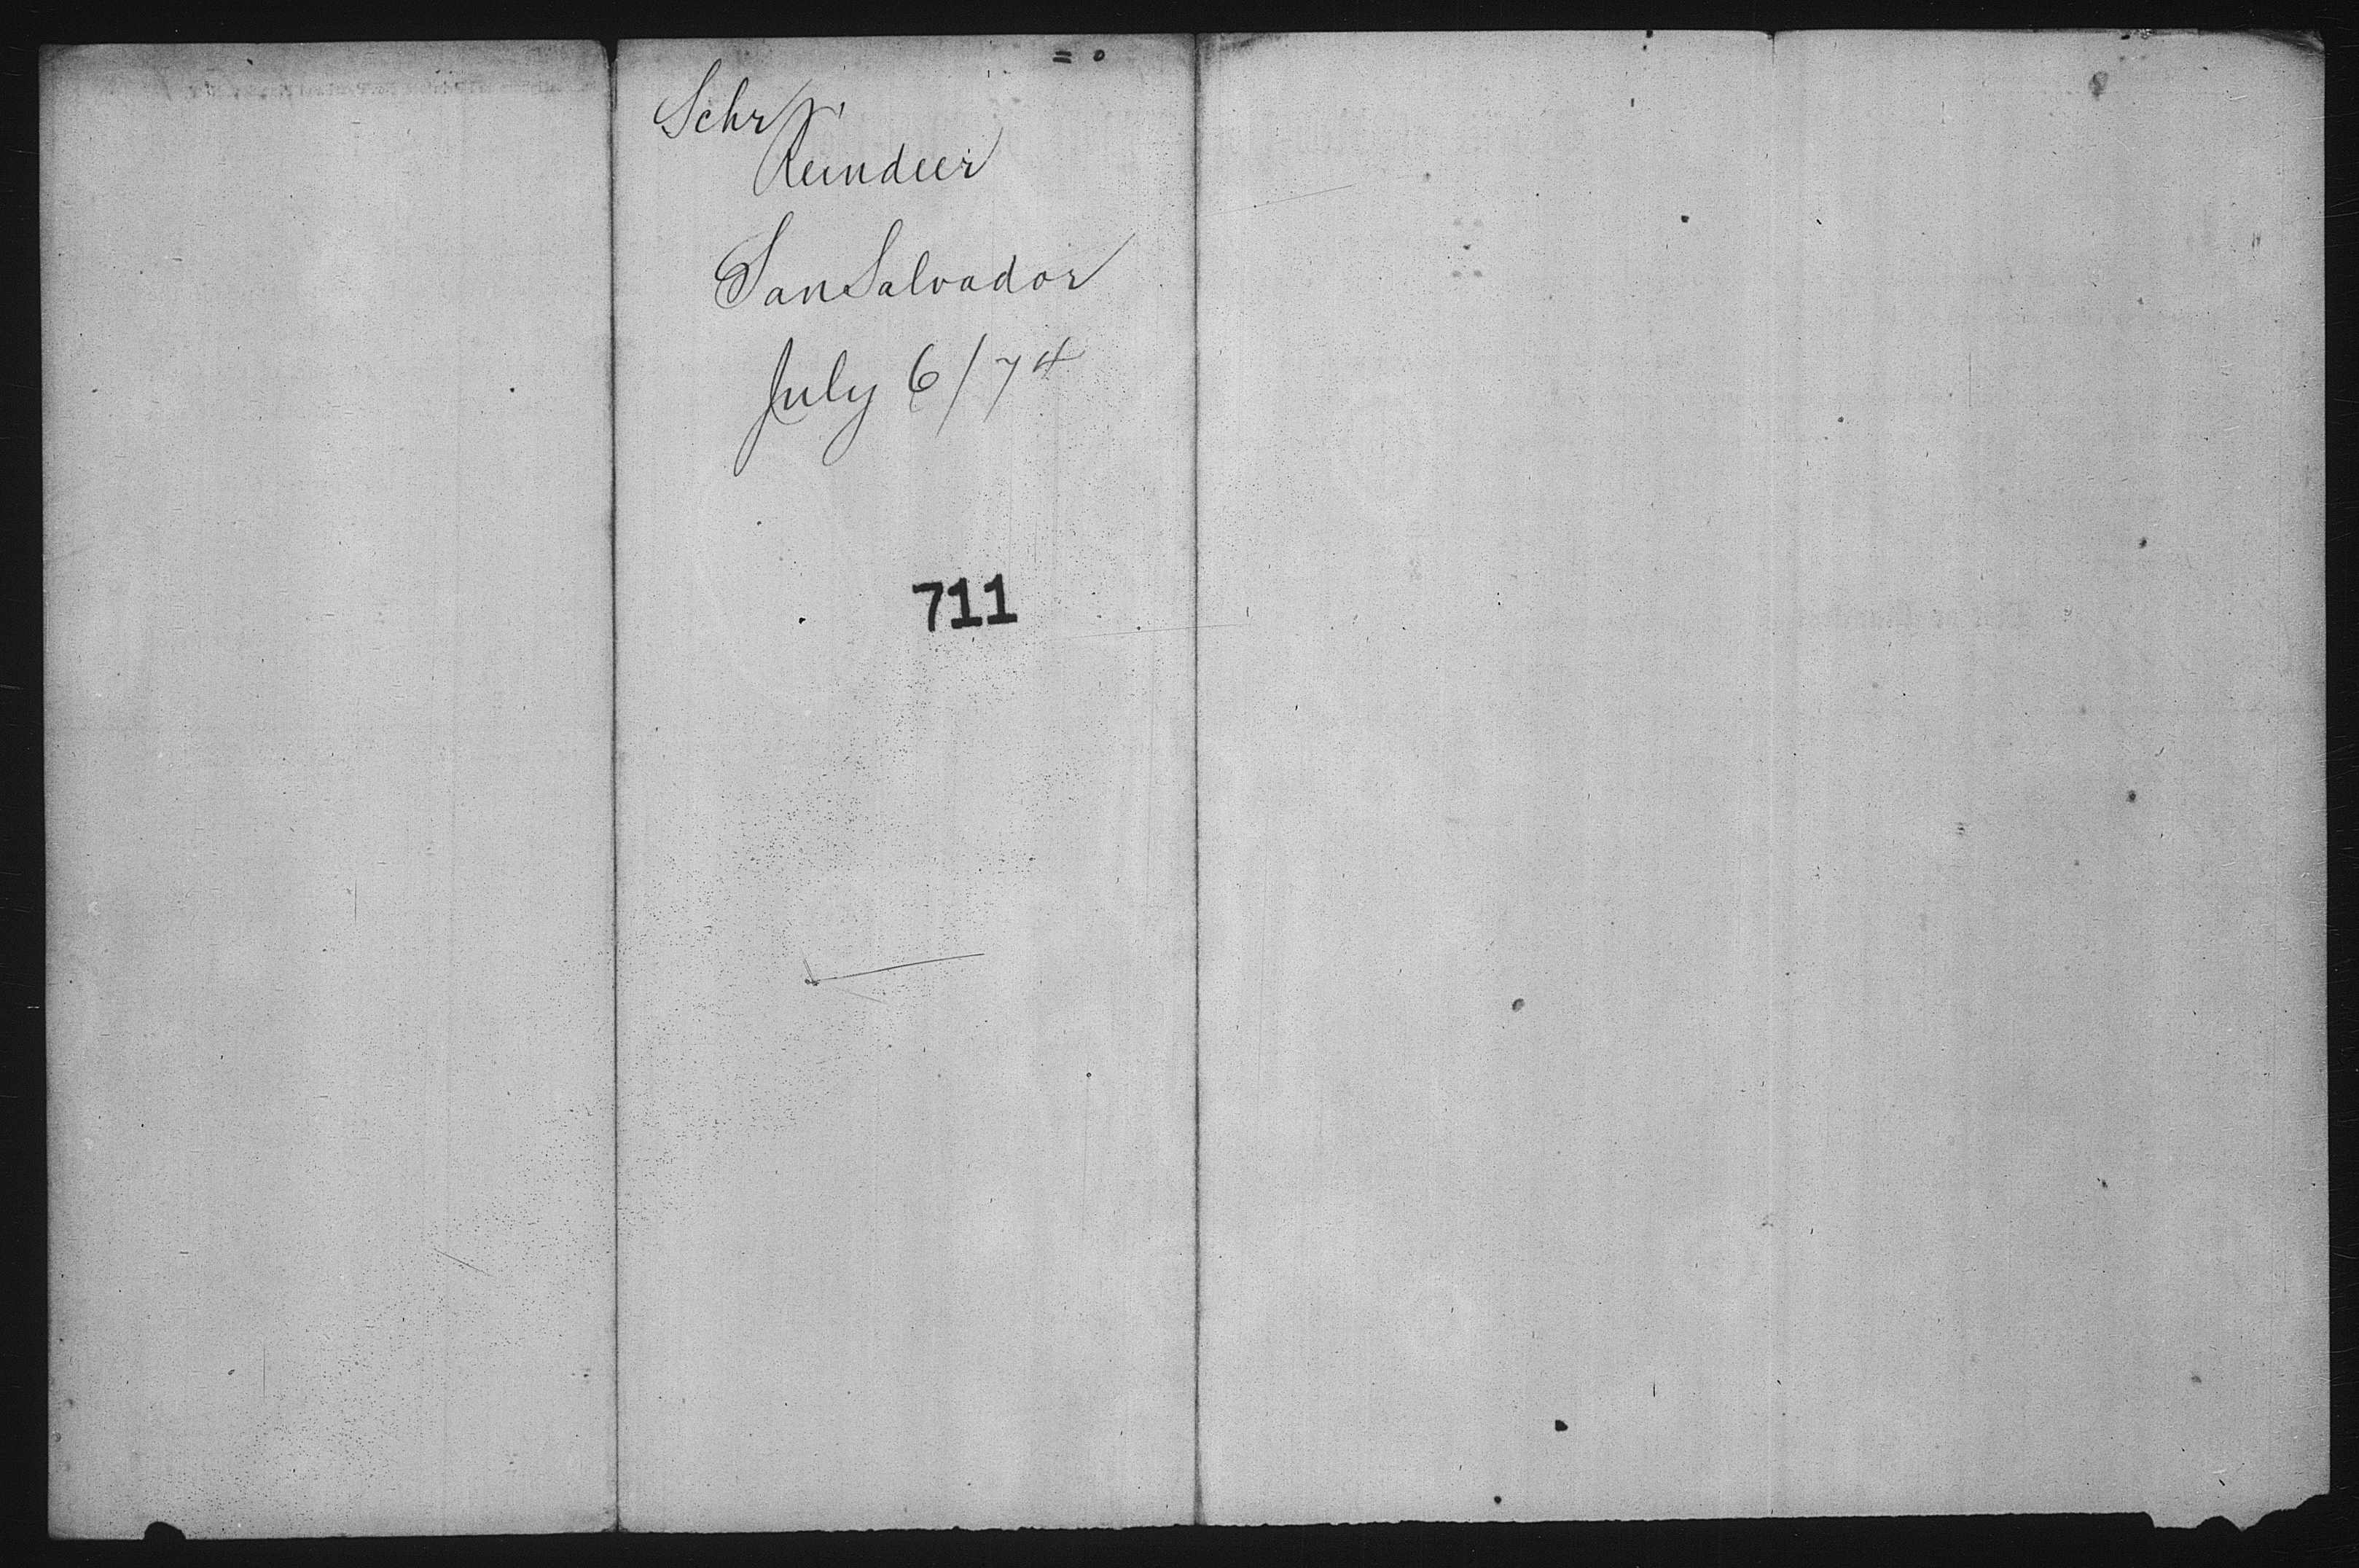 Schr
Reindeer
San Salvador
July 6/74
711